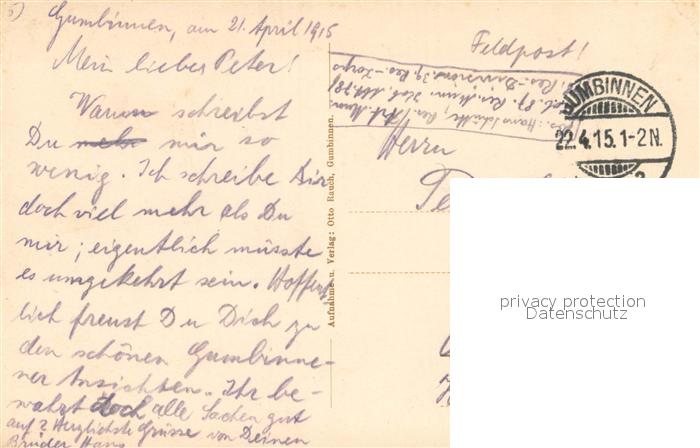 5)
Gumbinnen, am 21. April 1915
Mein lieber Peter!
Warum schreibst
Du mir so
wenig. Ich schreibe Dir
doch viel mehr als Du
mir; eigentlich müsste
es umgekehrt sein. Hoffent
lich freust Du Dich zu
den schönen Gumbinne-
ner Ansichten. Ihr be-
wahrt doch alle Sachen gut
auf? Herzlichste Grüsse von Deinem
Bruder Hans
Aufnahme u. Verlag: Otto Rauch, Gumbinnen.
Feldpost!
Abs.: Hans
Res.-Division 39. Res.-Korps
GUMBINNEN
22.4.15.1-2N.
Herrn
privacy protection
Datenschutz